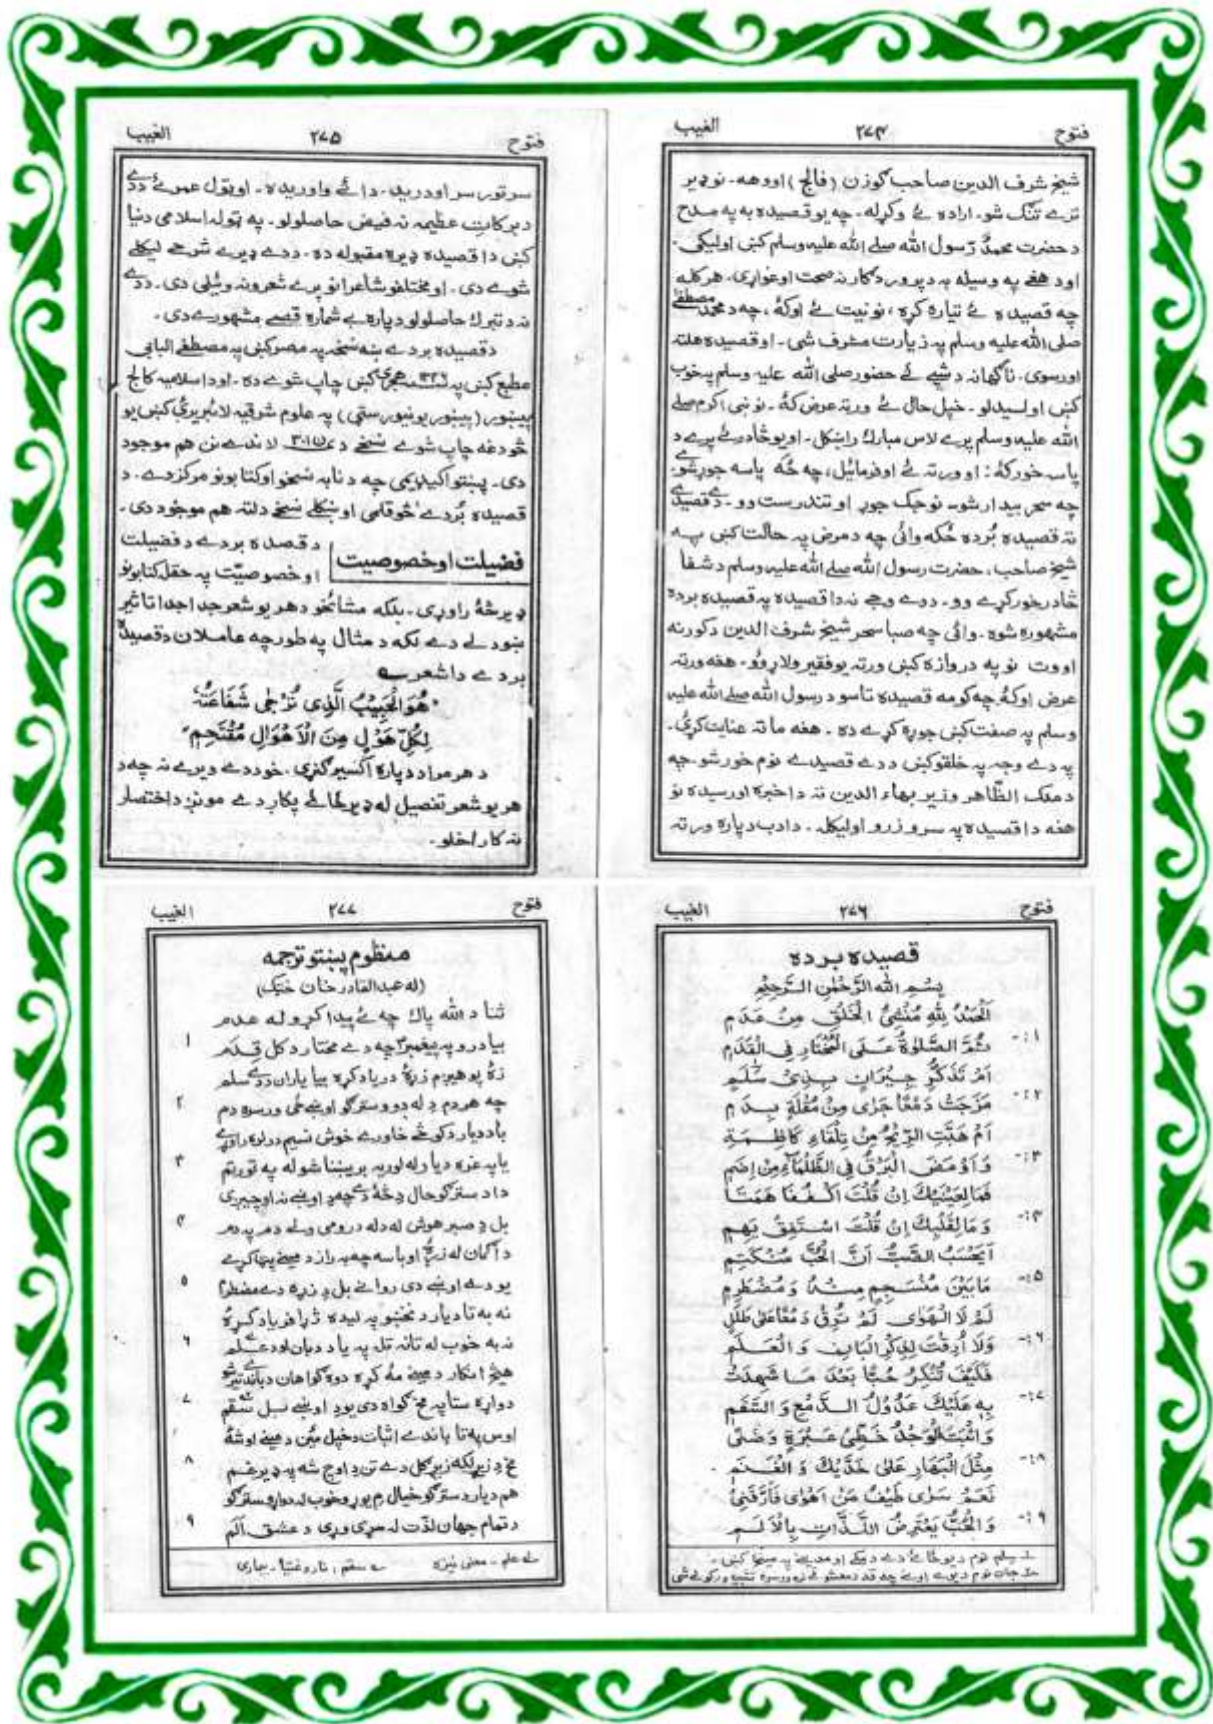 فتوح ۲۷۴ الغيب
شيخ شرف الدين صاحب ګوزن (فالج) اووهه۔ نو ډېر
ترے تنګ شو۔ اراده ئے وکړله۔ چه يو قصيده به په مدح
د حضرت محمدؐ رسول الله صلے الله عليه وسلم کښ اوليکی۔
اود هغے په وسيله به د پروردګار نه صحت اوغواړی۔ هرکله
چه قصيده ئے تياره کړه، نو نيت ئے اوکهٔ، چه د محمد مصطفےٰ
صلی الله عليه وسلم په زيارت مشرف شی۔ او قصيده هلته
اورسوی۔ ناګهانه د شپے ئے حضور صلی الله عليه وسلم په خوب
کښ اوليدلو۔ خپل حال ئے ورته عرض کهٔ۔ نو نبی اکرم صلے
الله عليه وسلم پرے لاس مبارک راښکل۔ او يو څادر ئے پرے د
پاسه خور کهٔ: او ورته ئے اوفرمائيل، چه ځه پاسه جوړ شوے۔
چه سحر بيدار شو۔ نو جک جوړ او تندرست وو۔ دے قصيدے
ته قصيده بُرده ځکه وائی چه د مرض په حالت کښ په
شيخ صاحب، حضرت رسول الله صلے الله عليه وسلم د شفا
څادر خور کړے وو۔ ددے وجے نه دا قصيده په قصيده برده
مشهوره شوه۔ وائی چه صبا سحر شيخ شرف الدين د کور نه
اووت نو په دروازه کښ ورته يو فقير ولاړ وو۔ هغه ورته
عرض اوکهٔ چه کومه قصيده تاسو د رسول الله صلے الله عليه
وسلم په صفت کښ جوړه کړے ده۔ هغه ماته عنايت کړئ۔
په دے وجه په خلقو کښ ددے قصيدے نوم خور شو۔ چه
د ملک الظّاهر وزير بهاء الدين ته دا خبره اورسيده نو
هغه دا قصيده په سرو زرو اوليکله۔ د ادب دپاره ورته
فتوح ۲۷۵ الغيب
سرتور سر اودريد۔ دا ئے واوريده۔ او ټول عمر ئے ددے
د برکاتِ عظيمه نه فيض حاصلولو۔ په ټوله اسلامی دنيا
کښ دا قصيده ډېره مقبوله ده۔ ددے ډېرے شرحے ليکلے
شوے دی۔ او مختلفو شاعرانو پرے شعرونه وئيلی دی۔ ددے
نه د تبرک حاصلولو دپاره بے شماره قصے مشهورے دی۔
د قصيده بردے ښه نسخه په مصر کښ په مصطفے البابی
مطبع کښ په هجری کښ چاپ شوے ده۔ او د اسلاميه کالج
پيښور (پيښور يونيورسټی) په علوم شرقيه لائبريرئ کښ يو
څو دغه چاپ شوے نسخے د لاندے نن هم موجود
دی۔ پښتو اکيډيمی چه د نايه نسخو او کتابونو مرکز دے۔ د
قصيده بُردے څو قلمی او ښکلے نسخے دلته هم موجود دی۔
فضيلت او خصوصيت
د قصده بردے د فضيلت
او خصوصيّت په حقله کتابونو
ډېر څهٔ راوړی۔ بلکه مشائخو د هر يو شعر جدا جدا تاثير
ښودلے دے لکه د مثال په طور چه عاملان د قصيده
بردے دا شعر
هُوَ الْحَبِيْبُ الَّذِی تُرْجٰی شَفَاعَتُهٗ
لِكُلِّ هَوْلٍ مِنَ الْاَهْوَالِ مُقْتَحِمٖ
د هر مراد دپاره اکسير ګنړی۔ خو ددے ويرے نه چه د
هر يو شعر تفصيل له ډېر ځائے پکار دے مونږ د اختصار
نه کار اخلو۔
فتوح ۲۷۶ الغيب
قصيده برده
بِسْمِ اللهِ الرَّحْمٰنِ الرَّحِيْمِ
اَلْحَمْدُ لِلّٰهِ مُنْشِئُ الْخَلْقِ مِنْ عَدَمٖ
۱:- ثُمَّ الصَّلٰوةُ عَلَی الْمُخْتَارِ فِی الْقَدَمٖ
اَمْ تَذَكُّرٍ جِيْرَانٍ بِذِیْ سَلَمٖ
۲:- مَزَجْتَ دَمْعًا جَرٰی مِنْ مُقْلَةٍ بِدَمٖ
اَمْ هَبَّتِ الرِّيْحُ مِنْ تِلْقَاءِ كَاظِمَةٍ
۳:- وَ اَوْمَضَ الْبَرْقُ فِی الظَّلْمَآءِ مِنْ اِضَمٖ
فَمَا لِعَيْنَيْكَ اِنْ قُلْتَ اكْفُفَا هَمَتَا
۴:- وَ مَا لِقَلْبِكَ اِنْ قُلْتَ اسْتَفِقْ يَهِمٖ
اَيَحْسَبُ الصَّبُّ اَنَّ الْحُبَّ مُنْكَتِمٌ
۵:- مَا بَيْنَ مُنْسَجِمٍ مِنْهُ وَ مُضْطَرِمٖ
لَوْ لَا الْهَوٰی لَمْ تُرِقْ دَمْعًا عَلٰی طَلَلٍ
۶:- وَلَا اَرِقْتَ لِذِكْرِ الْبَانِ وَ الْعَلَمٖ
فَكَيْفَ تُنْكِرُ حُبًّا بَعْدَ مَا شَهِدَتْ
۷:- بِهٖ عَلَيْكَ عُدُوْلُ الدَّمْعِ وَ السَّقَمٖ
وَ اثْبَتَ الْوَجْدُ خَطَّیْ عَبْرَةٍ وَ ضَنًی
۸:- مِثْلَ الْبَهَارِ عَلٰی خَدَّيْكَ وَ الْعَنَمٖ
نَعَمْ سَرٰی طَيْفُ مَنْ اَهْوٰی فَاَرَّقَنِیْ
۹:- وَ الْحُبُّ يَعْتَرِضُ اللَّذَّاتِ بِالْاَلَمٖ
سلم نوم د يو ځائے دے د مکے او مدينے په مينځ کښ۔
فتوح ۲۷۷ الغيب
منظوم پښتو ترجمه
(له عبدالقادر خان خټک)
ثنا د الله پاک چه ئے پيدا کړو له عدم
بيا درود په پيغمبر چه دے مختار د کل قِدم ۱
زهٔ پوهيږم زړهٔ د رياد کړه بيا ياران د ذی سلم
چه هر دم دِ له دوو سترګو اوښے ځی ورسره دم ۲
ياد ديار د کوڅے خاورے خوش نسيم درلوه راوړے
يا په غره د يار له لوريه بريښنا شوله په تورتم ۳
دا د سترګو حال دِ څهٔ دے چه دِ اوښے نه اوچيږی
بل دِ صبر هوش له دله درومی وله دم په دم ۴
د اګمان له زړهٔ اوباسه چه به راز د مينے پټ کړے
يو دے اوښے دی روانے بل دِ زړه دے مضطرم ۵
نه به تا د يار د نخښو په ليده ژړا فرياد کړهٔ
نه به خوب له تا نه تله په ياد د بان او د علم ۶
هيڅ انکار د مينے مهٔ کړه دوه ګواهان دِ باندے تېر شو
دواړه ستا په مخ ګواه دی يو دِ اوښے بل سقم ۷
اوس په تا باندے اثبات د خپل مئين د مينے اوشهٔ
مخ دِ زېړ لکه زېړ ګل دے تن دِ اوچ شه په ډېر غم ۸
هم د يار د سترګو خيال مِ يوړو خوب له دواړو سترګو
د تمام جهان لذّت له مړی وړی د عشق اَلَم ۹
علم۔ معنی نيزه
سقم: ناروغتيا۔ بيماری